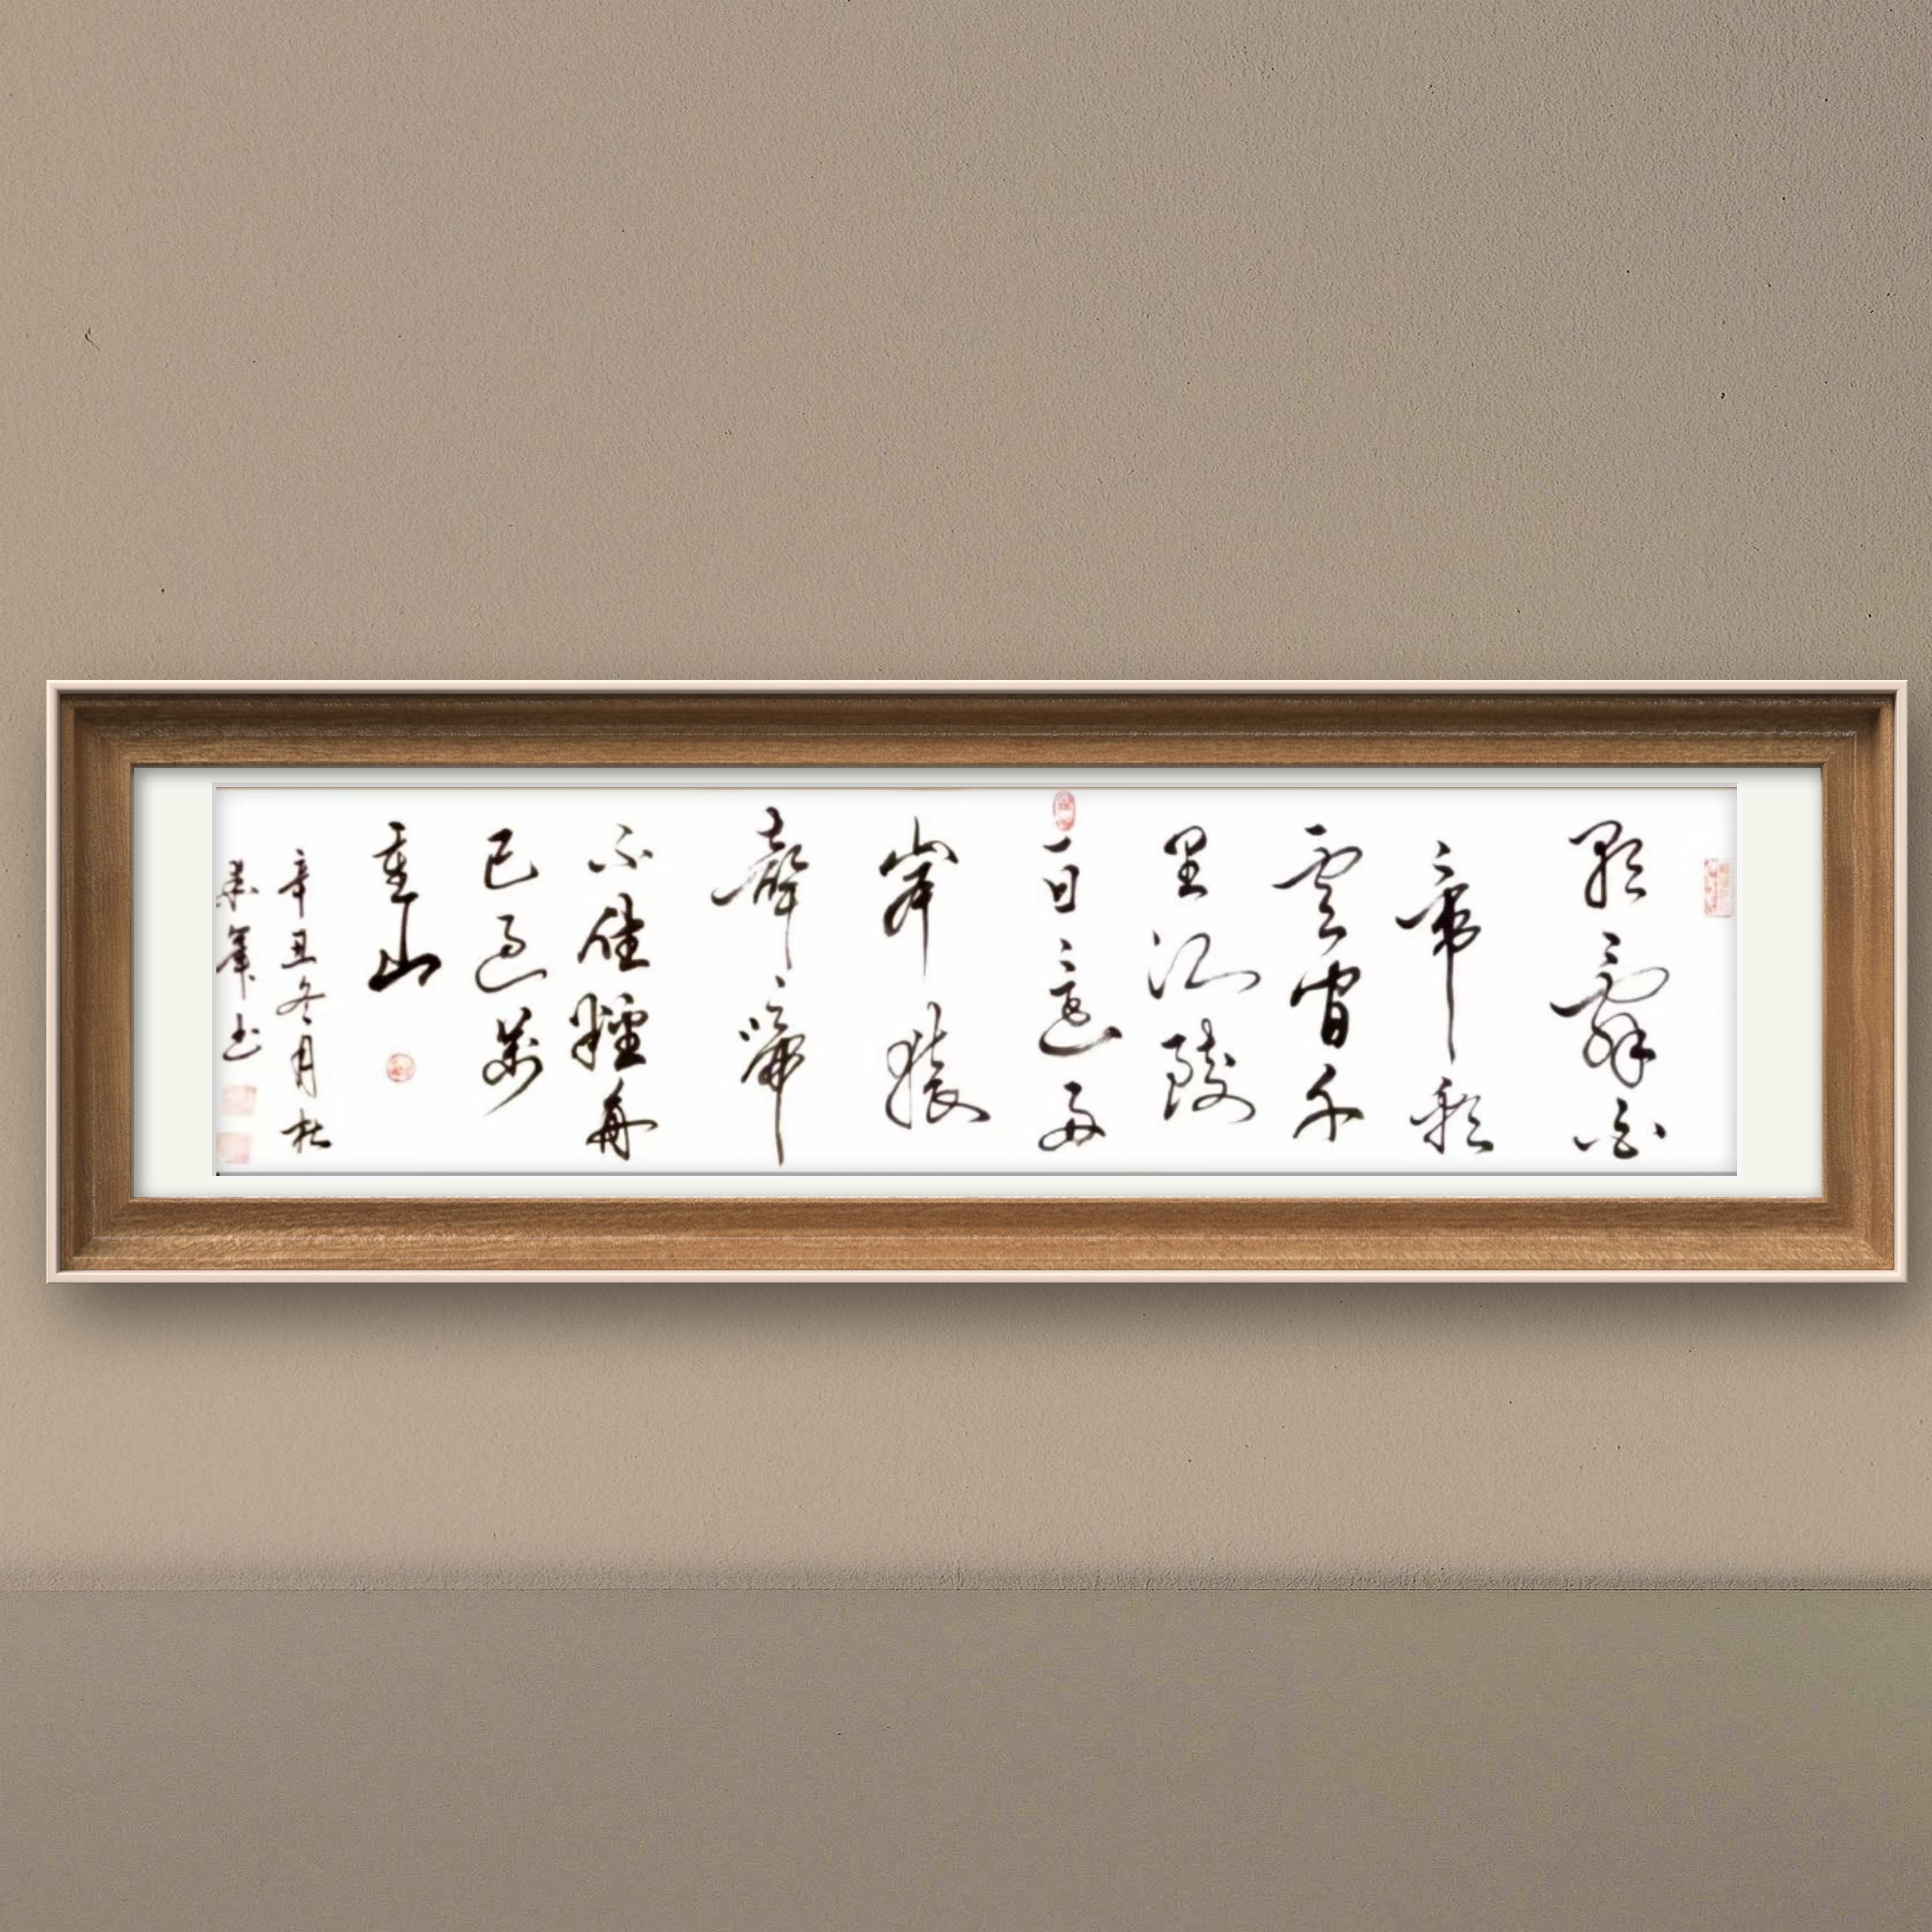 朝辭白
帝彩
雲間千
里江陵
一日還兩
岸猿
聲啼
不住輕舟
已過萬
重山
辛丑冬月杜
书